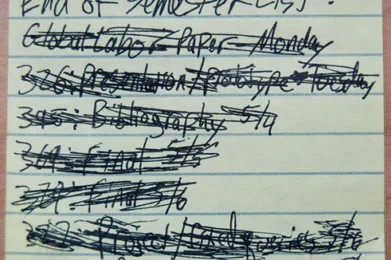 End of Semester List:
Global Labor Paper - Monday
326: Presentation/Prototype - Tuesday
395: Bibliography 5/4
369: Final 5/5
379: Final 5/6
Project / 5/6